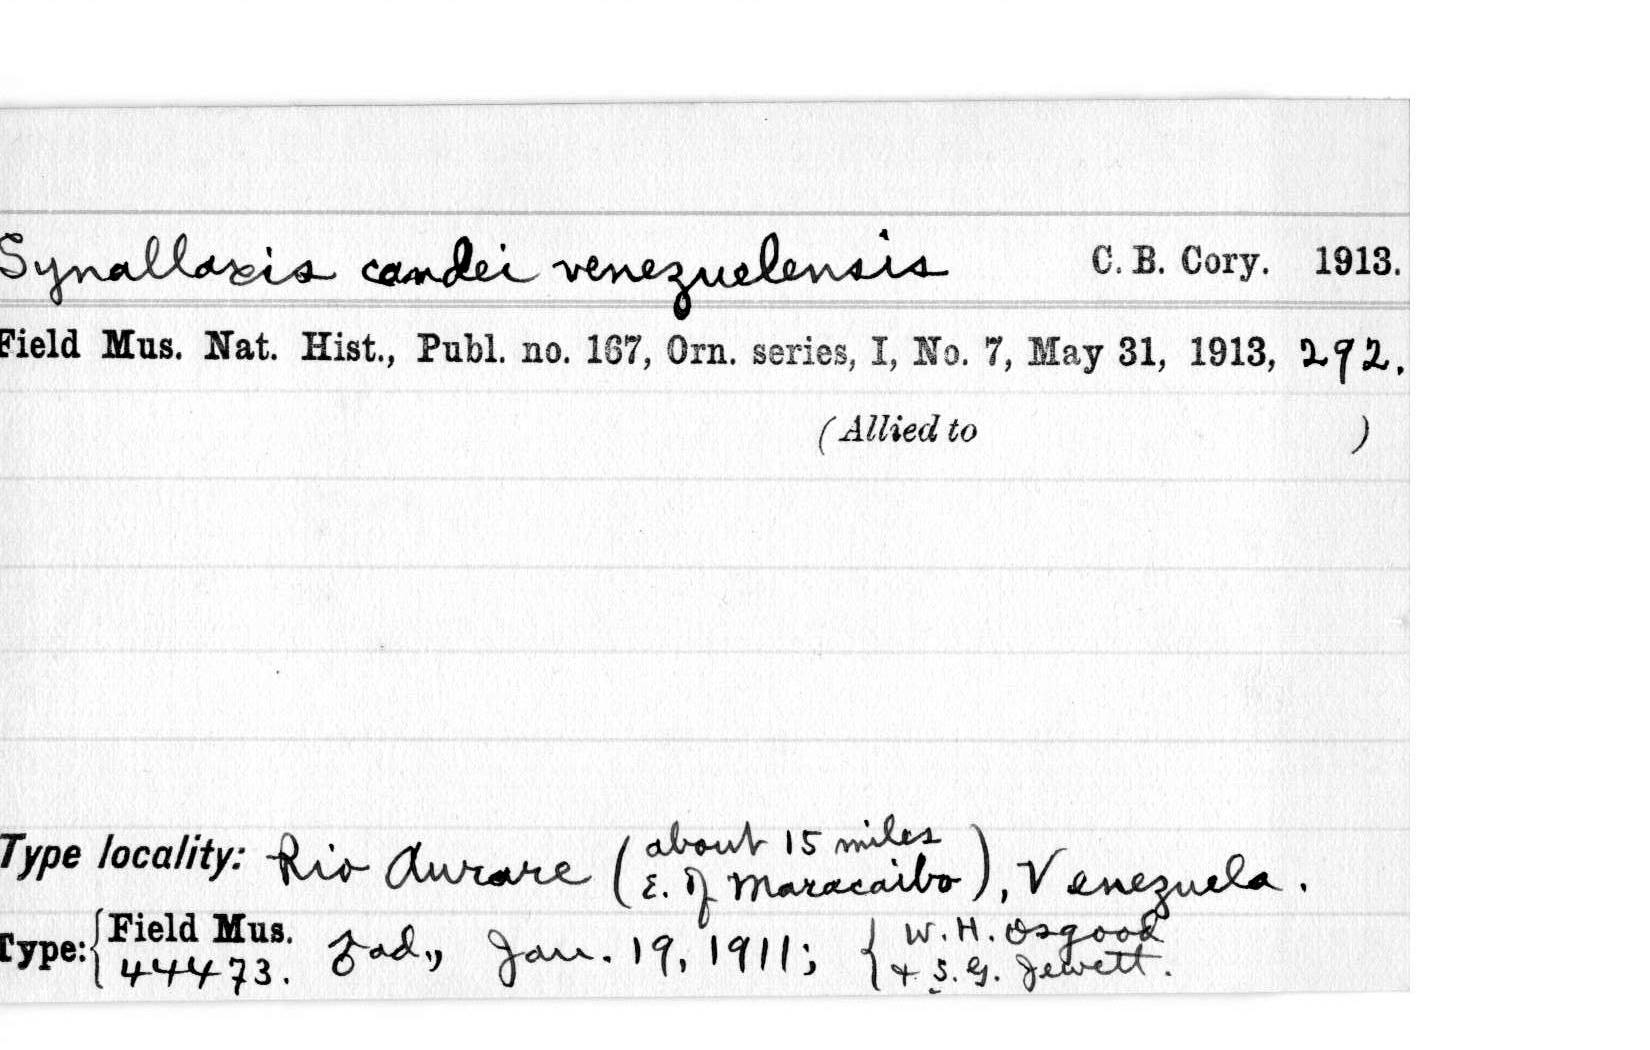 Synallaxis candei venezuelensis C. B. Cory. 1913.
Field Mus. Nat. Hist., Publ. no. 167, Orn. series, I, No. 7, May 31, 1913, 292.
(Allied to )
Type locality: Rio Aurare (about 15 miles
E. of Maracaibo), Venezuela.
Type: {Field Mus.
44473. ♂ ad., Jan. 19, 1911; {W. H. Osgood
+ S. G. Jewett.